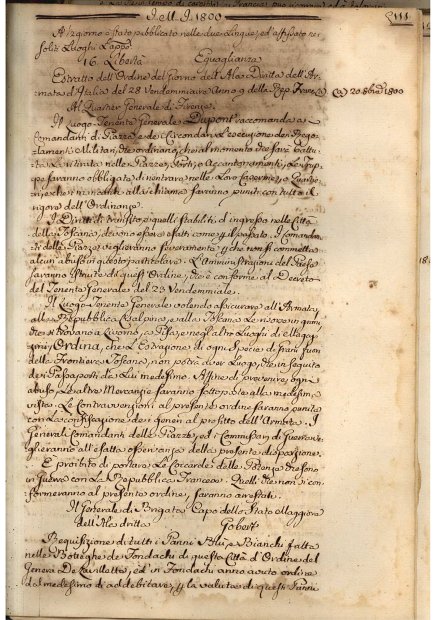 J. M. J. 1800
111
A 27 giorno è stato pubblicato nelle due Lingue, ed affissato nei
soliti Luoghi l'appo:
16 Libertà Eguaglianza
Estratto dell'Ordine del Giorno dell'Ala Diritta dell'Ar-
mata d'Italia del 28 Vendemmiaire Anno 9 della Rep. Francese
20. 8bre 1800
Al Quartier Generale di Firenze
Il Luogo Tenente Generale Dupont raccomanda a
Comandanti di Piazze e di Circondari l'esecuzione dei Rego-
lamenti Militari, che ordinano, che al momento che sarà battu-
ta la ritirata nelle Piazze, Forti, o Accantonamenti, le Trup-
pe saranno obbligate di rientrare nelle Loro Caserme, o Quartie-
ri, e che i mancanti alla chiamata saranno puniti con tutto il
rigore dell'Ordinanze.
I Diritti di transito, e quelli stabiliti d'ingresso nelle Città
della Toscana, devono essere esatti come per il passato. I Comandan-
ti delle Piazze veglieranno severamente per che non si commetta
alcun abuso in questo particolare. L'Amministrazioni del Paese
saranno istruite di quest'Ordine, che è conforme al Decreto
del Tenente Generale del 23 Vendemmiale.
Il Luogo Tenente Generale volendo assicurare all'Armata,
alla Repubblica Cisalpina, e alla Toscana le risorse in grani,
che si trovano a Livorno, a Pisa, e negl'altri Luoghi di
Ordina, che l'Estrazione di ogni specie di grani fuori
delle Frontiere Toscane, non potrà aver Luogo, che in seguito
dei Passaporti del Lui medesimo. Affine di prevenire ogni
abuso, le altre Mercanzie saranno sottoposte alla medesima
visita. Le Contravvenzioni al presente ordine saranno punite
con la confiscazione dei generi a profitto dell'Armata. I
Generali Comandanti delle Piazze, ed i Commissari di Guerra ve-
glieranno all'esatta osservanza della presente disposizione.
È proibito di portare le Coccarde delle Potenze che sono
in guerra con la Repubblica Francese. Quelli che non si con-
formeranno al presente ordine, saranno arrestati.
Il Generale di Brigata Capo dello Stato Maggiore
dell'Ala dritta Gobert
Requisizione di tutti i Panni Blu, e Bianchi fatta
nelle Botteghe de Fondachi di questa Città d'Ordine del
Genera De La Villette, ed i Fondachi anno avuto ordine
dal medesimo di addebitare, per la valuta di questi Panni
18.